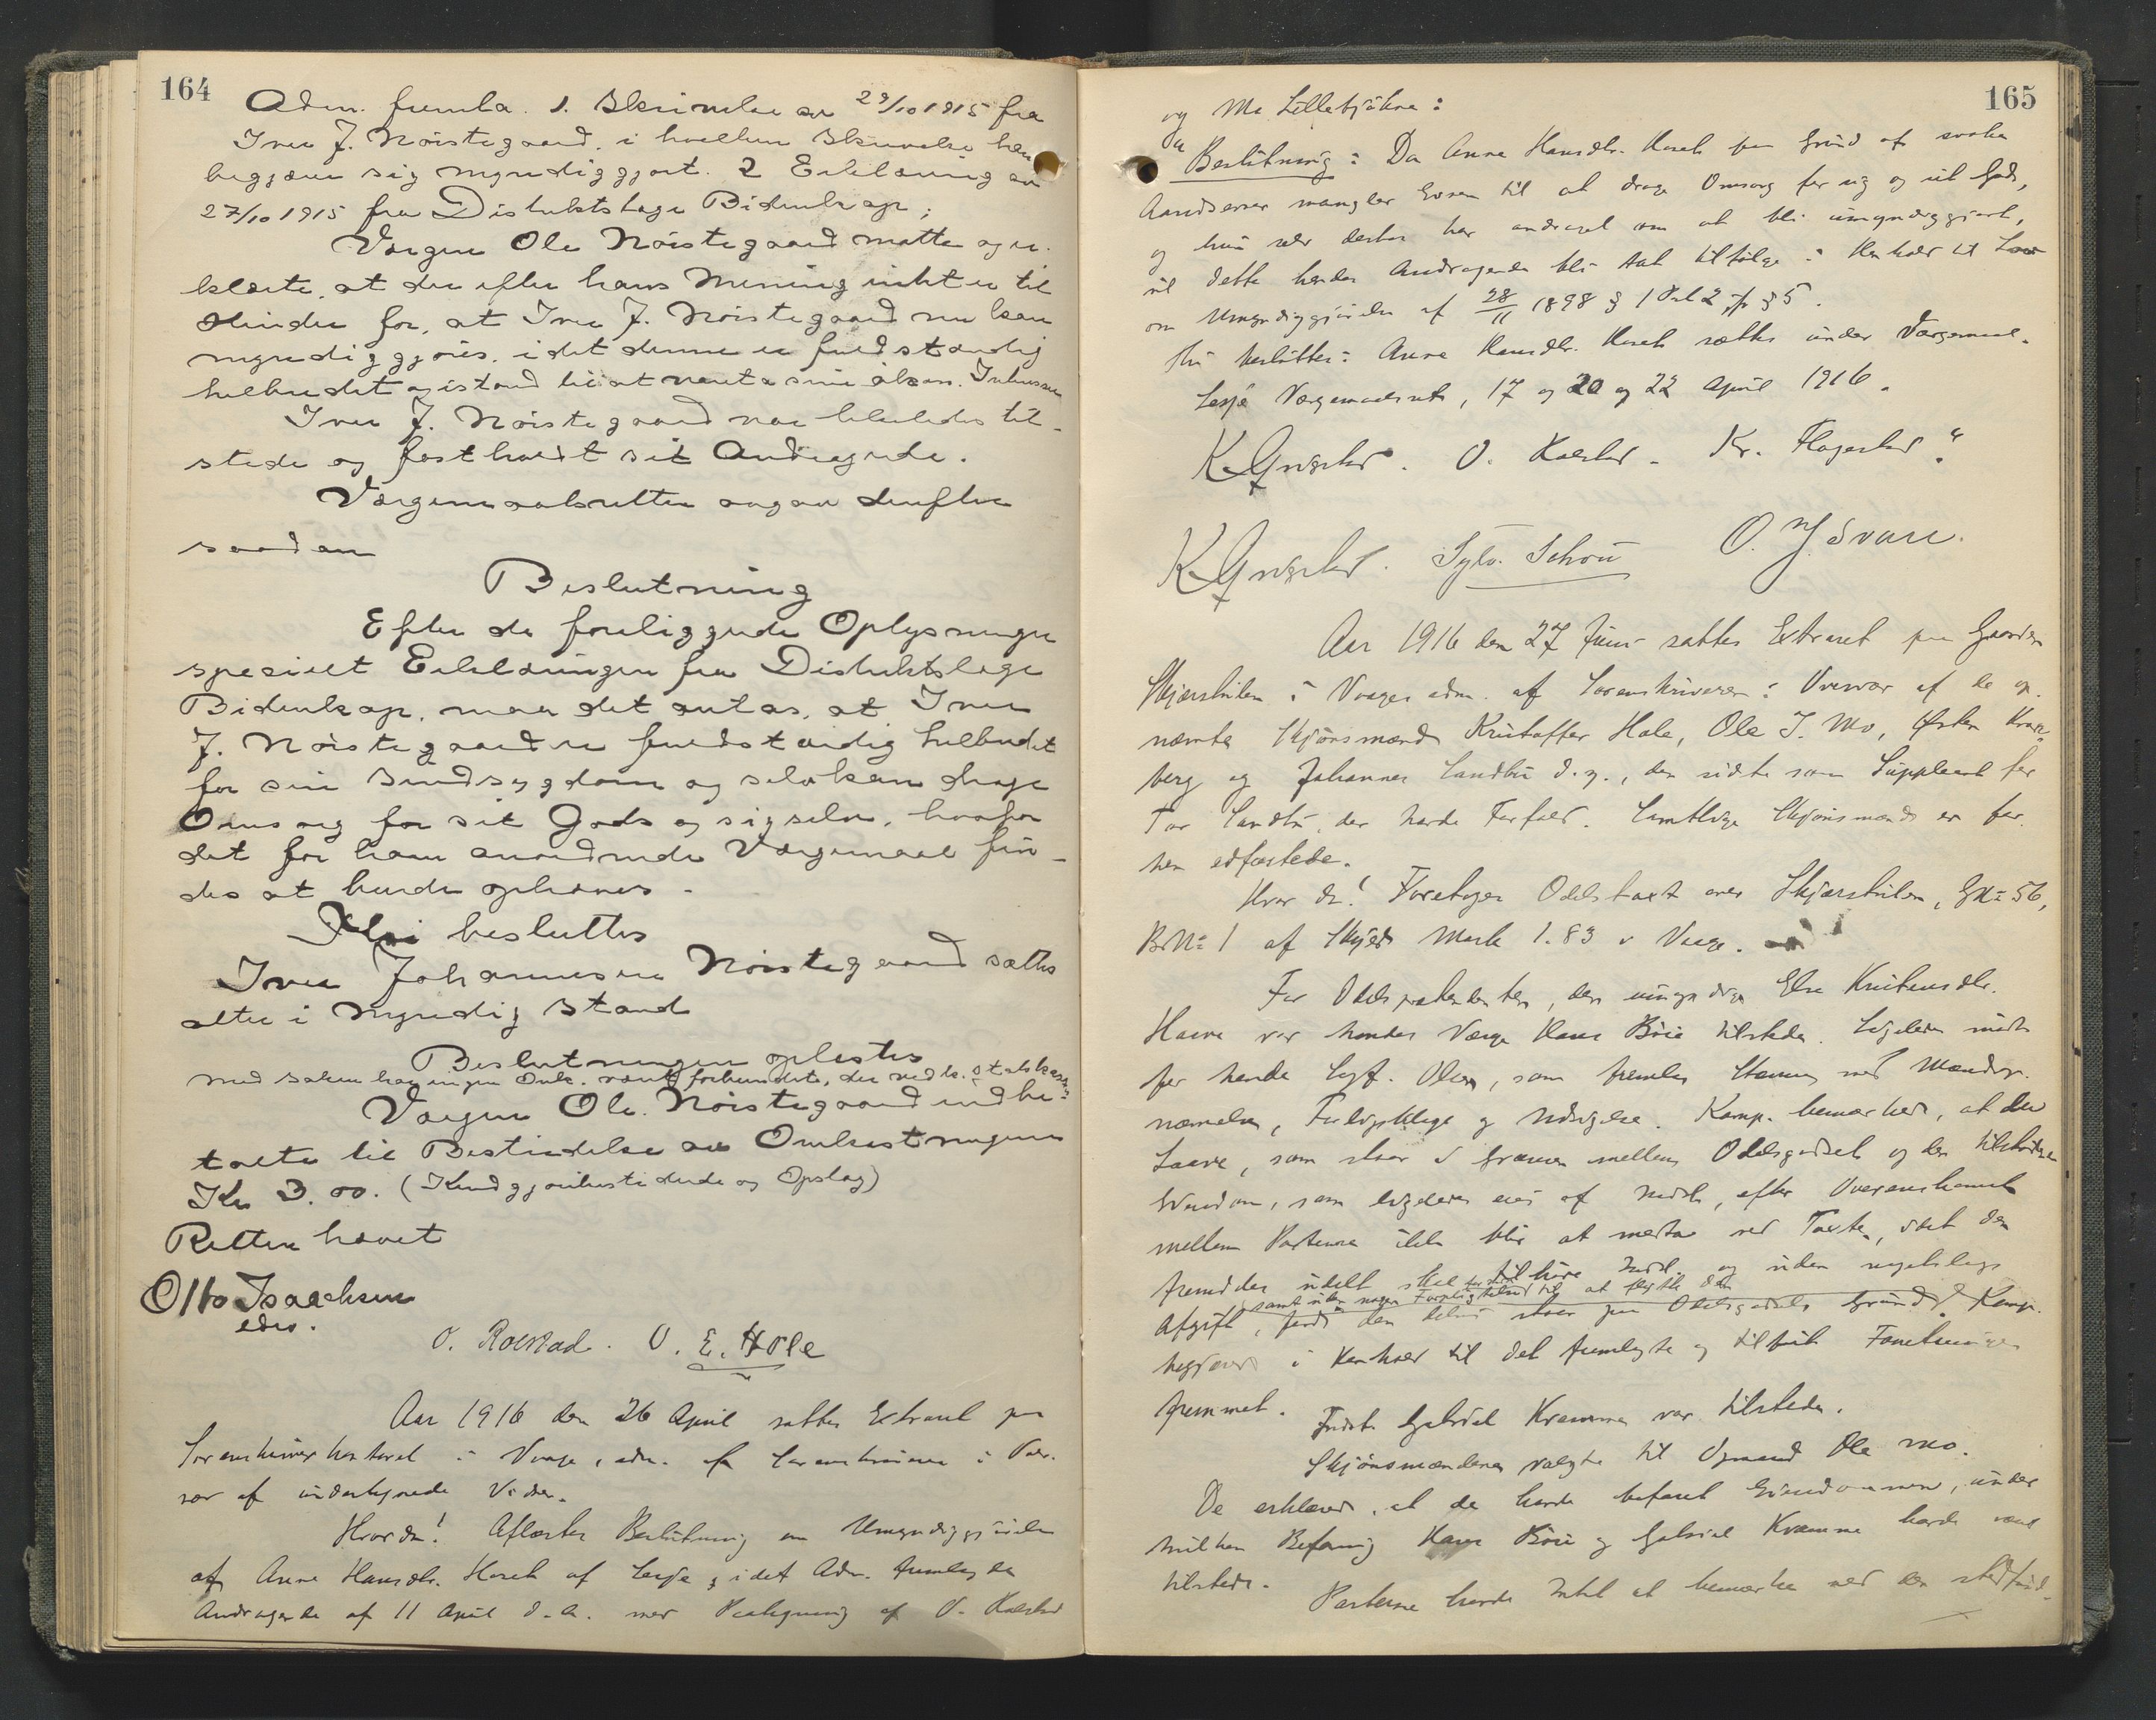 164
Adm. fremla. 1. Skrivelse av 29/10 1915 fra
Iver J. Nøistegaard, i hvilken Skrivelse han
begjærer sig myndiggjort. 2 Erklæring av
27/10 1915 fra Distriktslæge Bidenkap;
Værgen Ole Nøistegaard møtte og er
klærte, at der efter hans Mening intet er til
Hinder for, at Iver J. Nøistegaard nu kan
myndiggjøres, idet denne er fuldstændig
helbredet og istand til at vareta sine økon. Interesser
Iver J. Nøistegaard var likeledes til-
stede og fastholdt sit Andragende.
Værgemaalsretten avgav derefter
saadan
Beslutning
Efter de foreliggende Oplysninger
specielt Erklæringen fra Distriktslæge
Bidenkap, maa det antas, at Iver
J. Nøistegaard er fuldstændig helbredet
for sin Sindsygdom og selv kan drage
Omsorg for sit Gods og sig selv, hvorfor
det for ham anordnede Værgemaal fin-
des at burde ophæves.
Thi besluttes
Iver Johannesen Nøistegaard sættes
atter i Myndig Stand
Beslutningen oplæstes
med saken har ingen Omk. været forbundet, der ved k. Statskassen
Værgen Ole Nøistegaard indbe-
talte til Bestridelse av Omkostningene
Kr 3.00. (Kundgjørelsestidende og Opslag)
Retten hævet
Otto Isaachsen
edsv.
O. Rolstad. O. E. Hole
Aar 1916 den 26 April sattes Extraret paa
Sorenskriverkontoret i Vaage, adm. af Sorenskriveren i Over-
vær af undertegnede Vidner.
Hvorda! Aflæstes Beslutning om Umyndiggjørelse
af Anne Hansdtr. Horet af Lesje, idet Adm. fremlagde
Andragende af 11 April d.a. med Paategning af O. Kolstad
165
og M. Lillebjøkne:
Beslutning: Da Anne Hansdtr. Horet paa Grund af svake
Aandsevner mangler Evnen til at drage Omsorg for sig og sit Gods,
og hun selv derfor har andraget om at bli umyndiggjort,
vil dette hendes Andragende bli tat tilfølge i Henhold til Lov
om Umyndiggjørelse af 28/11 1898 § 1 Pkt 2, jfr § 5.
Thi besluttes: Anne Hansdtr. Horet sættes under Værgemaal.
Lesje Værgemaalsret, 17 og 20 og 22 April 1916.
K Gngstad. O. Kolstad. Kr. Flagestad."
K Gngstad. Sylv. Schou O. Y. Svare.
Aar 1916 den 27 Juni sattes Extraret paa Gaarden
Skjærstulen i Vaage adm. af Sorenskriveren i Overvær af de op-
nævnte Skjønsmænd Kristoffer Hole, Ole I. Mo, Østen Kruk-
berg og Johannes Sandbu d.y., den sidste som Supleant for
Tor Sandbu, der havde Forfald. Samtlige Skjønsmænd er før
hen edfæstede.
Hvor da! Foretoges Odelstaxt over Skjærstulen, GN: 56,
BN: 1 af Skyld Mark 1.83 i Vaage.
For Odelspretendenten, den umyndige Else Kristensdtr.
Harve var hendes Værge Hans Böie tilstede. Ligeledes mødte
for hende Sagf. Olsen, som fremla Stevning med Mændsop-
nævnelse, Forligsklage og Udsigelse. Komp. bemærkede, at den
Laave, som staar i Grænsen mellem Odelsgodset og den tilstøtende
Eiendom, som ligeledes eies af Indst, efter Overenskomst
mellem Parterne ikke blir at medta ved Taxten, idet den
fremdeles udelt skal tilhøre Indst. og uden nogetslags
samt uden nogen Forpligtelse til at flytte den
Afgift, fordi den delvis staar paa Odelsgodsets Grund. Komp.
begjærede i Henhold til det fremlagte og tilførte Forretningen
fremmet.
Indst. Gabriel Kramme var tilstede.
Skjønsmændene valgte til Opmand Ole Mo.
De erklærede, at de havde befaret Eiendommen, under
hvilken Befaring Hans Böie og Gabriel Kvamme havde været
tilstede.
Parterne havde Intet at bemærke ved den stedfind-